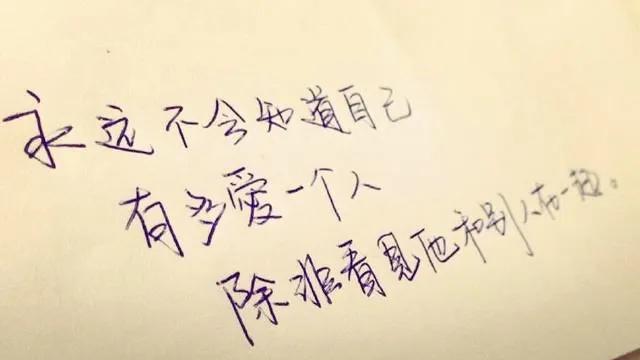 永远不会知道自己
有多愛一个人
除非看见他和别人在一起。